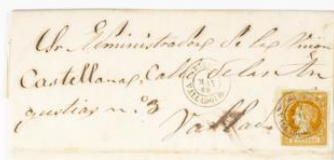 Sr Administrador de la Union
Castellana, Calle de las An
gustias n.º 3
Vallad